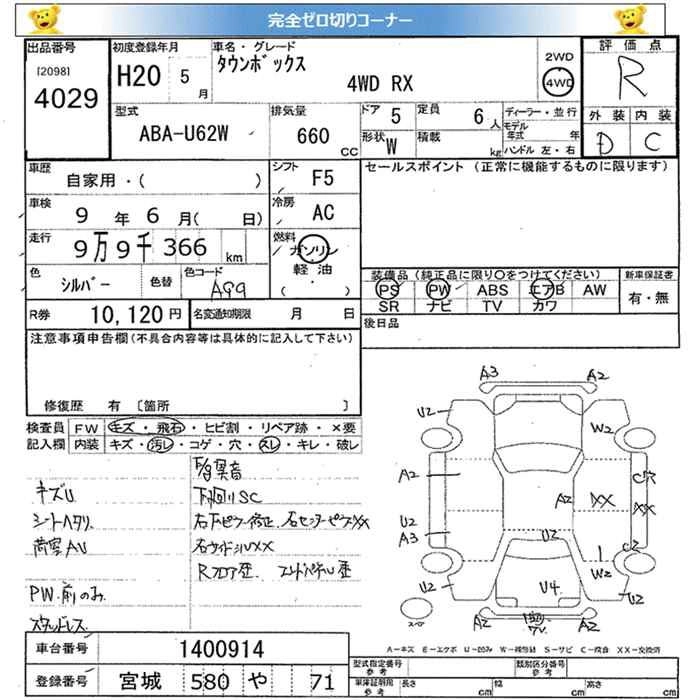 完全ゼロ切りコーナー
出品番号
[2098]
4029
初度登録年月
H20 5 月
車名・グレード
タウンボックス
4WD RX
2WD
4WD
評価点
R
型式
ABA-U62W
排気量
660 CC
ドア 5
定員 6 人
形状 W
積載 kg
ディーラー・並行
モデル年式 年
ハンドル 左・右
外装 内装
D C
車歴
自家用・( )
シフト
F5
車検
9 年 6 月( 日)
冷房
AC
走行
9万9千366 km
燃料
ガソリン
軽油
( ・ )
色
シルバー
色替
色コード
A99
R券 10,120 円
名変通知期限 月 日
セールスポイント(正常に機能するものに限ります)
装備品(純正品に限り○をつけてください)
PS PW ABS エアB AW
SR ナビ TV カワ
新車保証書
有・無
後日品
注意事項申告欄(不具合内容等は具体的に記入して下さい)
修復歴 有 〔箇所 〕
検査員記入欄
FW キズ・飛石・ヒビ割・リペア跡・×要
内装 キズ・汚レ・コゲ・穴・スレ・キレ・破レ
キズU
下回りSC
シートヘタリ
荷室AU
PW前のみ
スタッドレス
A3 A2
U2 W2
A2
U2
A3
A2 XX
C穴
XX
U2
C2
W2
U2 U4 U2
A2 A2
A-キズ E-エクボ U-凹み W-補修跡 S-サビ C-腐食 XX-交換済
車台番号 1400914
登録番号 宮城 580 や 71
型式指定番号 参考
類別区分番号 参考
車検証記載 参考
長さ cm 幅 cm 高さ cm